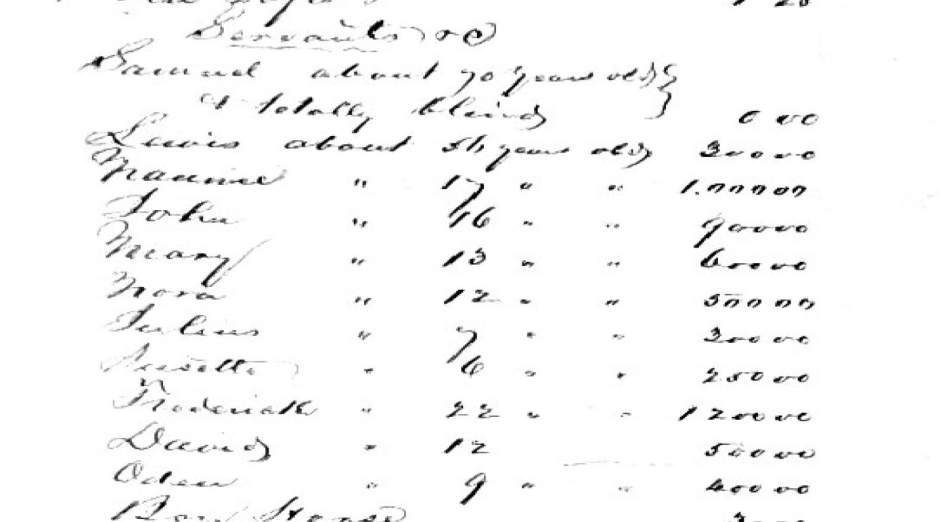 Servants &c
Samuel about 70 years old }
& totally blind } 0 00
Lewis about 54 years old 300 00
Maurice " 17 " " 1.000 00
John " 16 " " 900 00
Mary " 13 " " 600 00
Nora " 12 " " 500 00
Julius " 7 " " 300 00
" 6 " " 250 00
Frederick " 22 " " 1200 00
David " 12 500 00
Oden " 9 " " 400 00